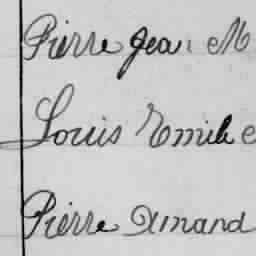 Pierre Jean M
Louis Emile
Pierre Amand